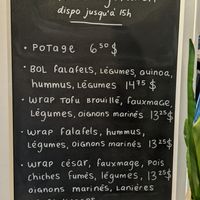 dispo jusqu'à 15h
• POTAGE 6⁵⁰$
• BOL falafels, légumes, quinoa,
hummus, légumes 14⁷⁵$
• wrap tofu brouillé, fauxmage,
légumes, oignons marinés 13²⁵$
• wrap falafels, hummus,
légumes, oignons marinés 13²⁵$
• wrap césar, fauxmage, pois
chiches fumés, légumes, 13²⁵$
oignons marinés, lanières